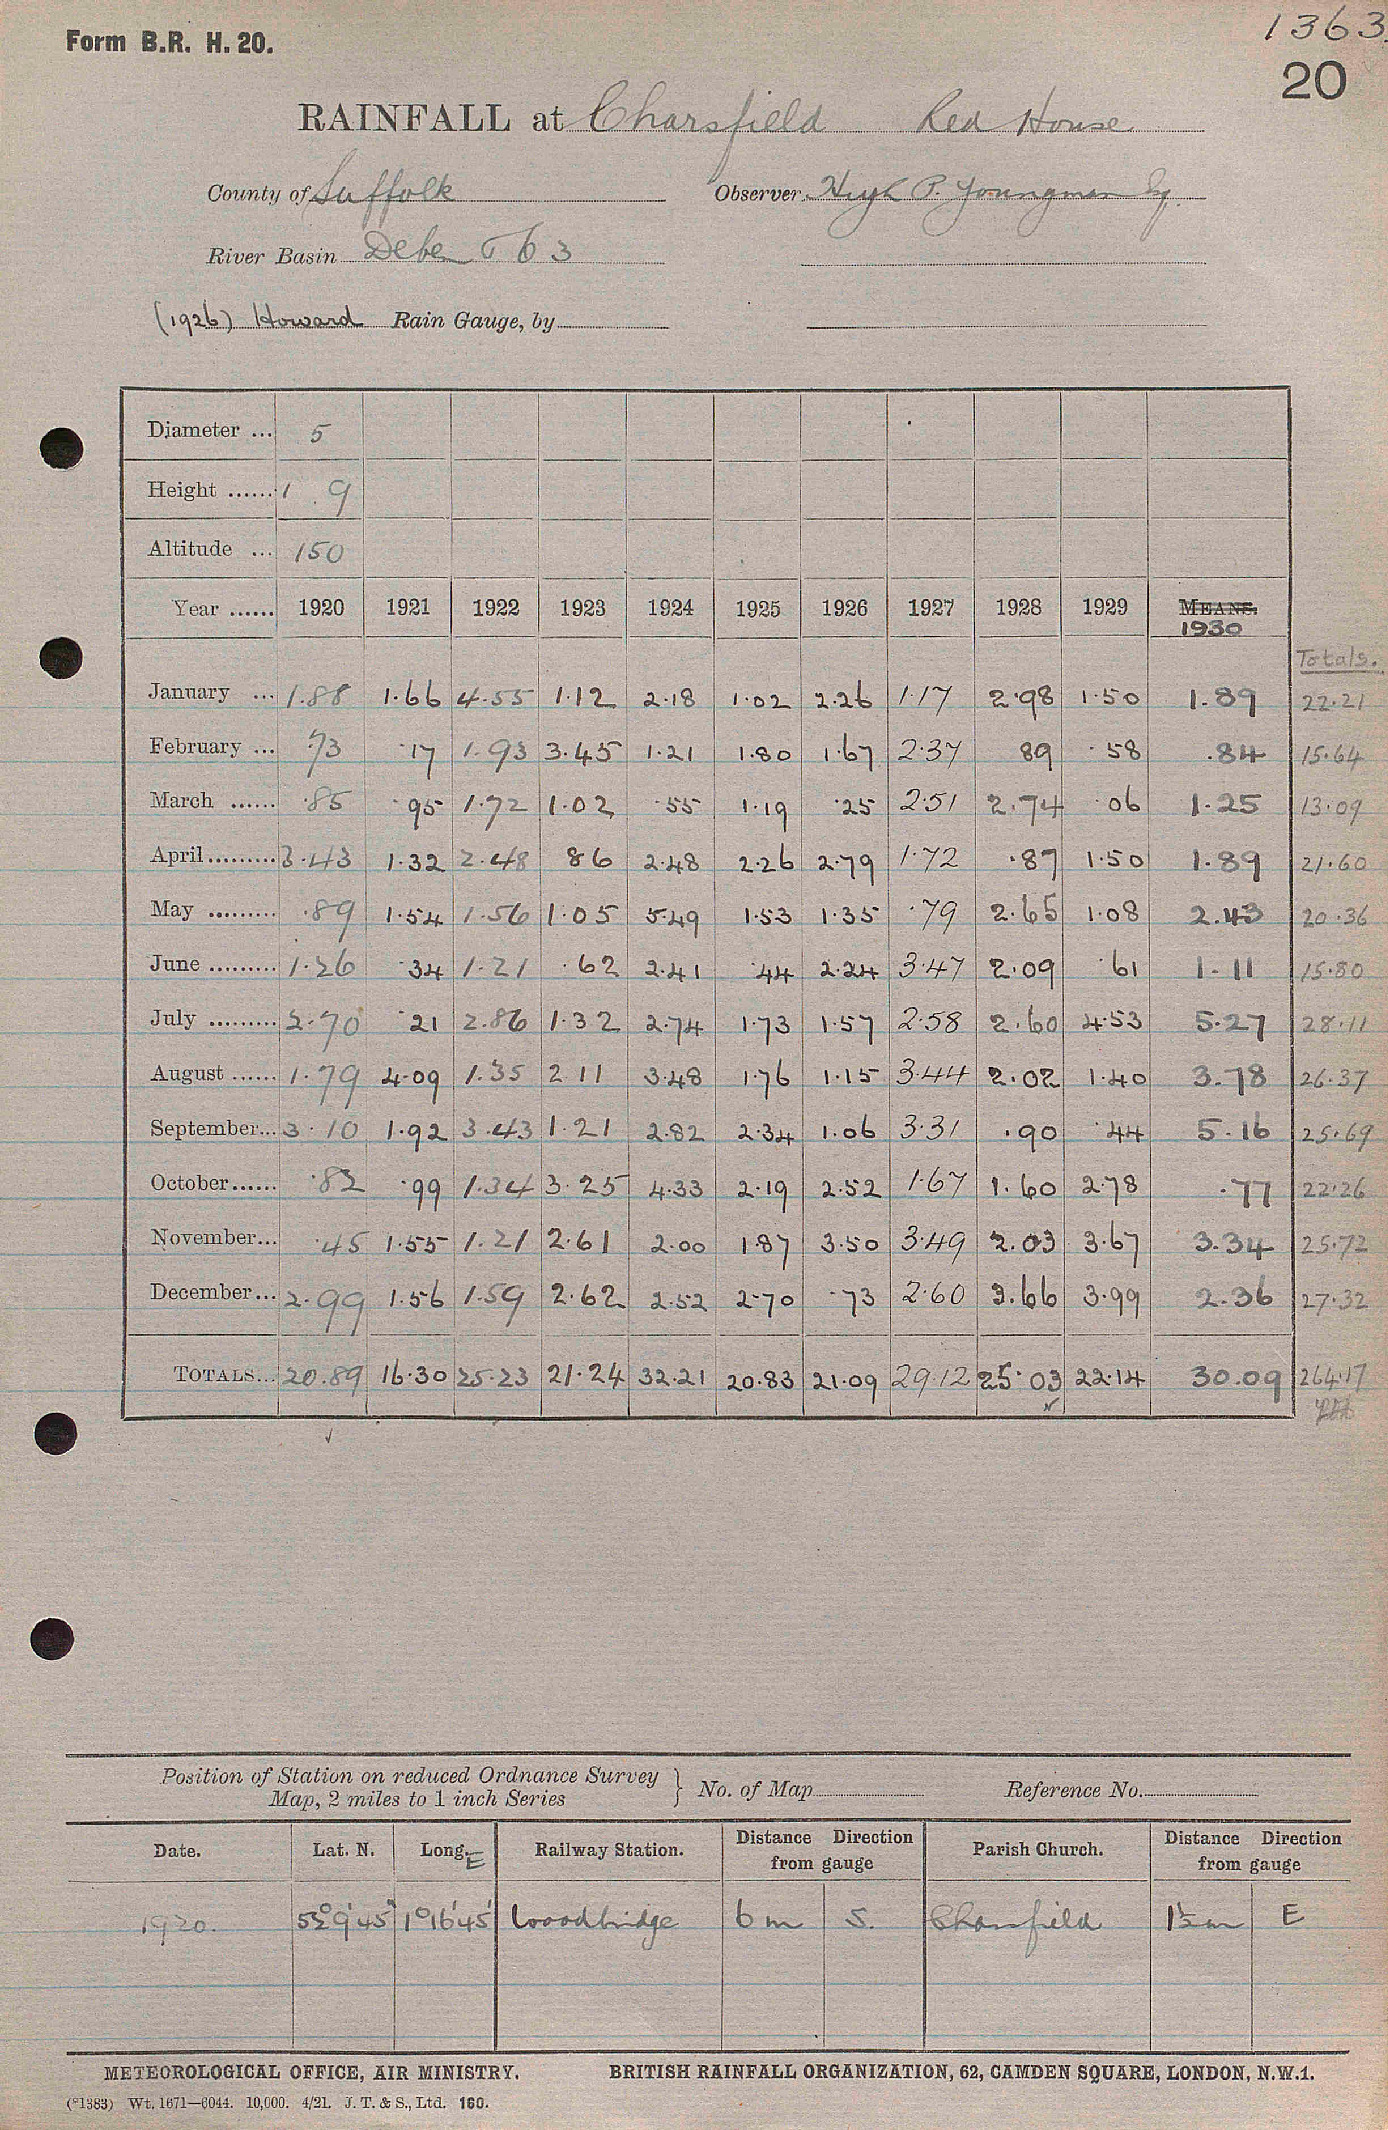 Form B.R. H. 20.
1363.
20
RAINFALL at Charsfield Red House
County of Suffolk Observer Hugh P. Youngman Esq.
River Basin Deben 63
(1926) Howard Rain Gauge, by
Diameter ... 5
Height ...... 1 . 9
Altitude ... 150
Year ...... 1920 1921 1922 1923 1924 1925 1926 1927 1928 1929 MEANS. 1930
Totals.
January ... 1.88 1.66 4.55 1.12 2.18 1.02 2.26 1.17 2.98 1.50 1.89 22.21
February ... .73 .17 1.93 3.45 1.21 1.80 1.67 2.37 89 .58 .84 15.64
March ...... .85 .95 1.72 1.02 .55 1.19 .25 2.51 2.74 .06 1.25 13.09
April ......... 3.43 1.32 2.48 86 2.48 2.26 2.79 1.72 .87 1.50 1.89 21.60
May ......... .89 1.54 1.56 1.05 5.49 1.53 1.35 .79 2.65 1.08 2.43 20.36
June ......... 1.26 .34 1.21 .62 2.41 .44 2.24 3.47 2.09 .61 1.11 15.80
July ......... 2.70 .21 2.86 1.32 2.74 1.73 1.57 2.58 2.60 4.53 5.27 28.11
August ...... 1.79 4.09 1.35 2 11 3.48 1.76 1.15 3.44 2.02 1.40 3.78 26.37
September... 3.10 1.92 3.43 1.21 2.82 2.34 1.06 3.31 .90 .44 5.16 25.69
October...... .82 .99 1.34 3.25 4.33 2.19 2.52 1.67 1.60 2.78 .77 22.26
November... .45 1.55 1.21 2.61 2.00 1.87 3.50 3.49 2.03 3.67 3.34 25.72
December... 2.99 1.56 1.59 2.62 2.52 2.70 .73 2.60 3.66 3.99 2.36 27.32
TOTALS... 20.89 16.30 25.23 21.24 32.21 20.83 21.09 29.12 25.03 22.14 30.09 264.17
Position of Station on reduced Ordnance Survey
Map, 2 miles to 1 inch Series } No. of Map Reference No.
Date. Lat. N. Long. E Railway Station. Distance Direction from gauge Parish Church. Distance Direction from gauge
1920. 52° 9' 45" 1° 16' 45" Woodbridge 6 m S. Charsfield 1½ m E
METEOROLOGICAL OFFICE, AIR MINISTRY. BRITISH RAINFALL ORGANIZATION, 62, CAMDEN SQUARE, LONDON, N.W.1.
(*1383) Wt. 1671—6044. 10,000. 4/21. J. T. & S., Ltd. 160.